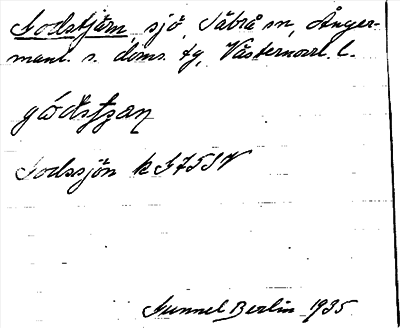 Godstjärn, sjö, Säbrå sn, Ånger-
manl. s. doms. tg, Västernorrl. l.
gódstjan
Godssjön k G75SV
Gunnel Berlin 1935